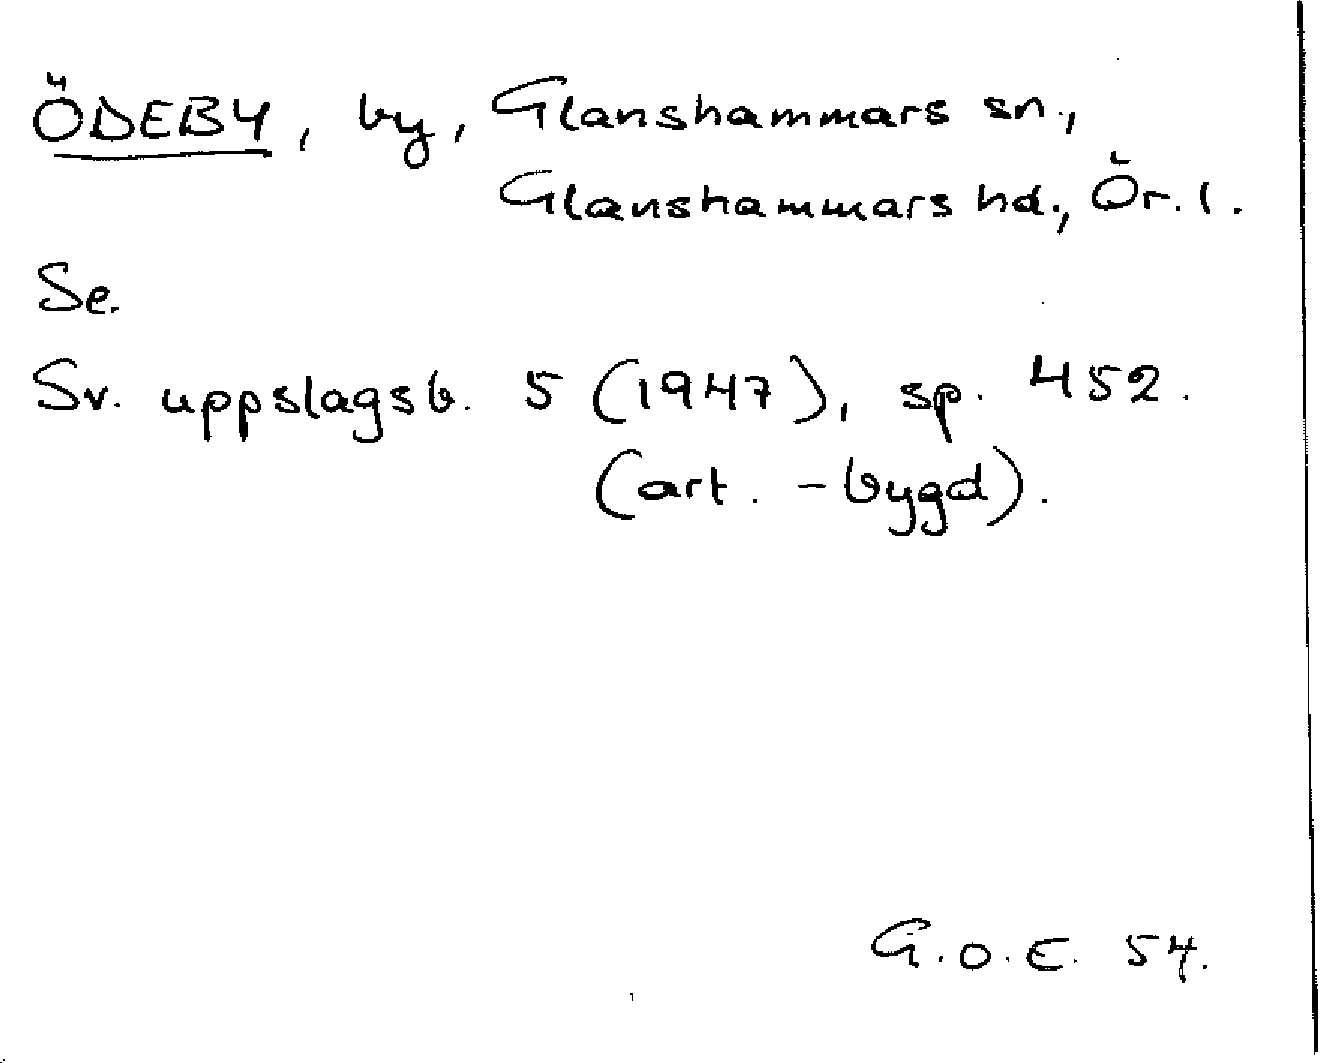 ÖDEBY, by, Glanshammars sn.,
Glanshammars hd., Ör. l.
Se.
Sv. uppslagsb. 5 (1947), sp. 452.
(art. -bygd).
G.O.E. 54.